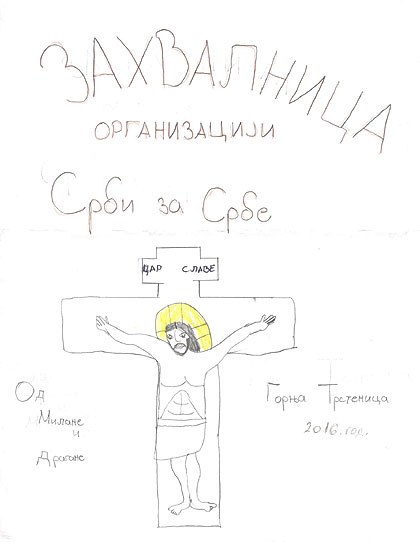 ЗАХВАЛНИЦА
ОРГАНИЗАЦИЈИ
Срби за Србе
ЦАР СЛАВЕ
Од
Милане
и
Драгане
Горња Трстеница
2016. год.